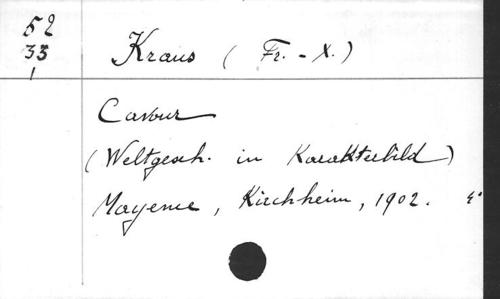 52
33
1
Kraus (Fr. - X.)
Cavour
(Weltgesch. in Karakterbild)
Mayence, Kirchheim, 1902. 4°